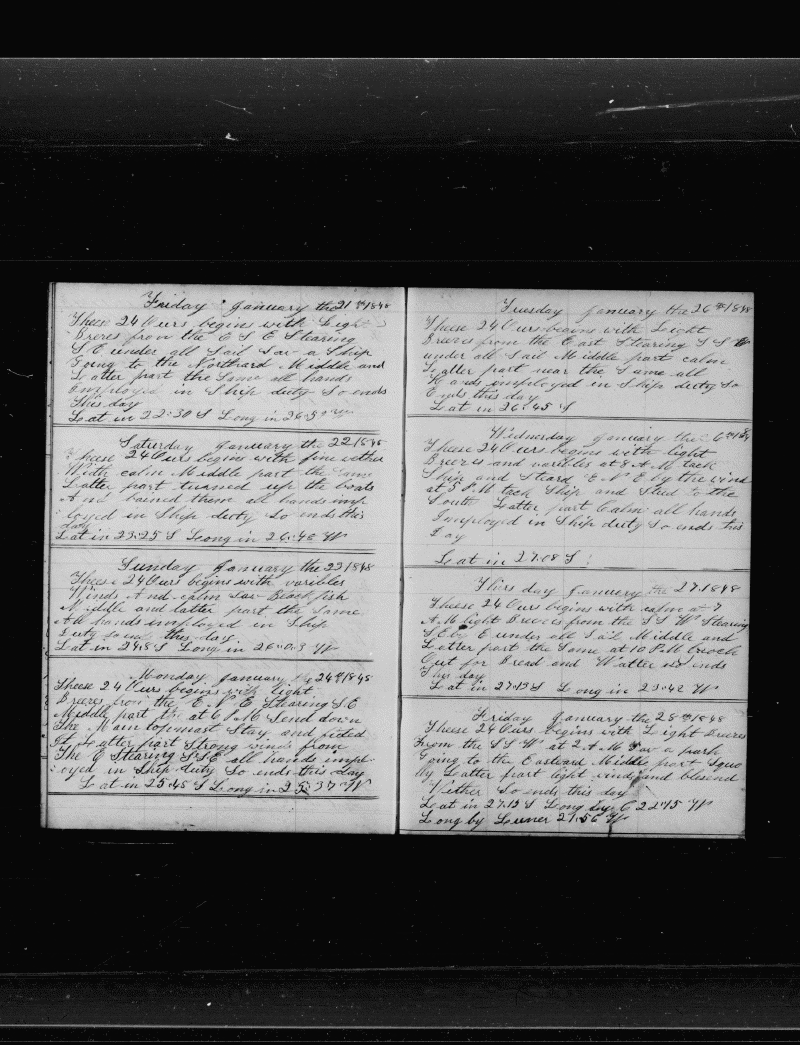 Friday January the 21 th 1848
Theese 24 Ours begins with Light
Breezes from the E S E Stearing
S E under all Sail Saw a Ship
Going to the Northard Middle and
Latter part the Same all hands
Employed in Ship duty So ends
This day
Lat in 22=30 S Long in
Saturday January the 22 1848
Theese 24 Ours begins with fine wether
With calm Middle part the Same
Latter part turned up the boats
And them all hands imp
loyed in Ship duty So ends this
day
Lat in 23=25 S Leong in 26=40 W
Sunday January the 23 1848
Theese 24 Ours begins with varibles
Winds And calm Saw Black fish
Middle and latter part the Same
All hands employed in Ship
Duty so ends this day
Lat in 24.8 S Long in 26=0.3 W
Monday January the 24 th 1848
Theese 24 Ours begins with light
Breezes from the E N E Stearing S.E
Middle part at 6 P M Send down
The Main topmast Stay and fided
It Latter part Strong winds from
The E Stearing S S E all hands impl
oyed in Ship duty So ends this day
Lat in 25=45 S Leong in 25=37 W
Tuesday January the 26 th 1848
Theese 24 Ours begins with Light
Breezes from the East Stearing S S W
under all Sail Middle part calm
Latter part near the Same all
Hands employed in Ship duty So
Ends this day
Lat in 26=45 S
Wednesday January the 6 th 184
Theese 24 Ours begins with light
Breezes and varibles at 8 A M tack
Ship and Steard E N E by the wind
at 5 P M tack Ship and Sted to the
South Latter part Calm all hands
Imployed in Ship duty So ends this
Day
Lat in 27=08 S
Thirs day January the 27 1848
Theese 24 Ours begins with calm at 7
A M light Breezes from the S S W Stearing
S E by E under all Sail Middle and
Latter part the Same at 10 P M broock
Out for Bread and Watter So ends
This day
Lat in 27=13 S Long in 23=42 W
Friday January the 28 th 1848
Theese 24 Ours begins with Light Breezes
From the S S W at 2 A M Saw a
Going to the Eastward Middle part Sque
lly Latter part light winds and
Wither So ends this day
Lat in 27=13 S Long by C 22=15 W
Long by Luner 21=56 W